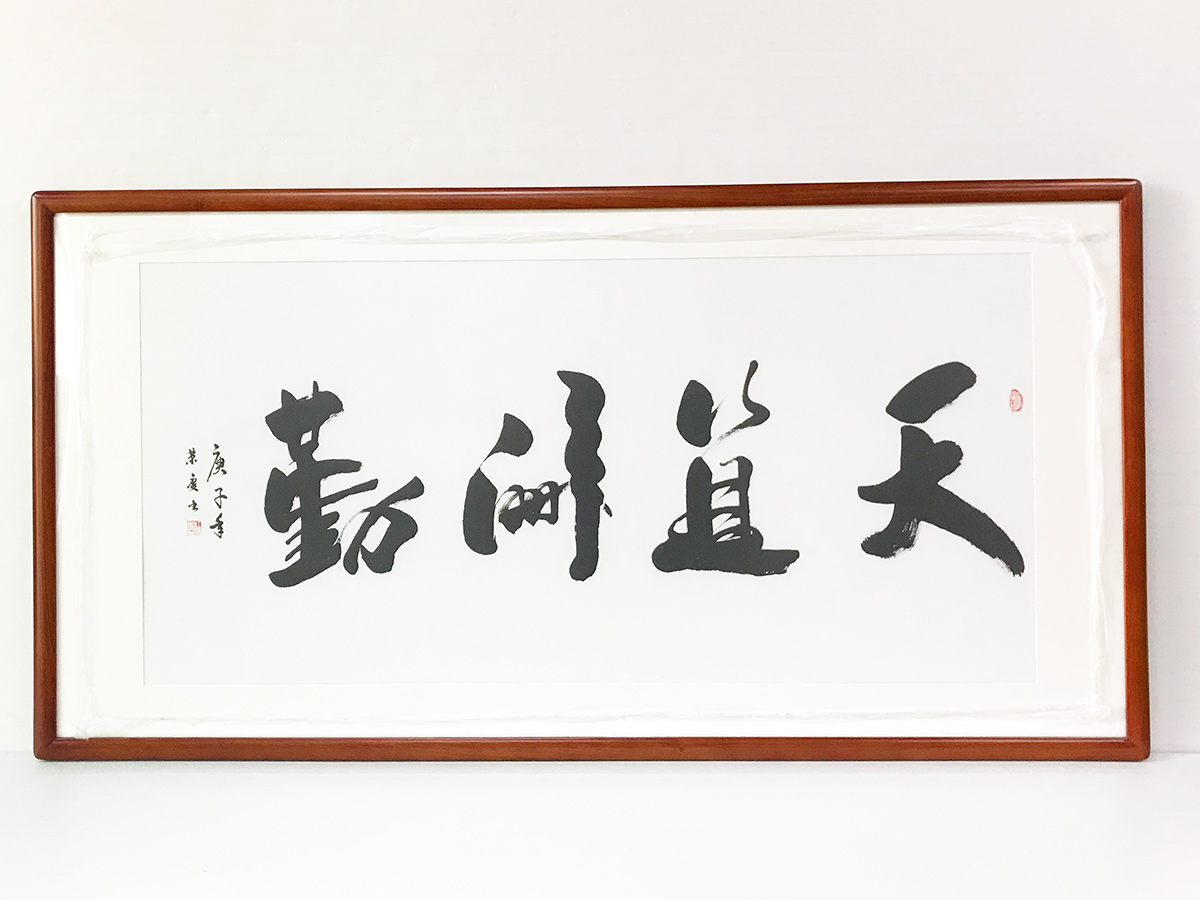 天道酬勤
庚子年
荣庆书